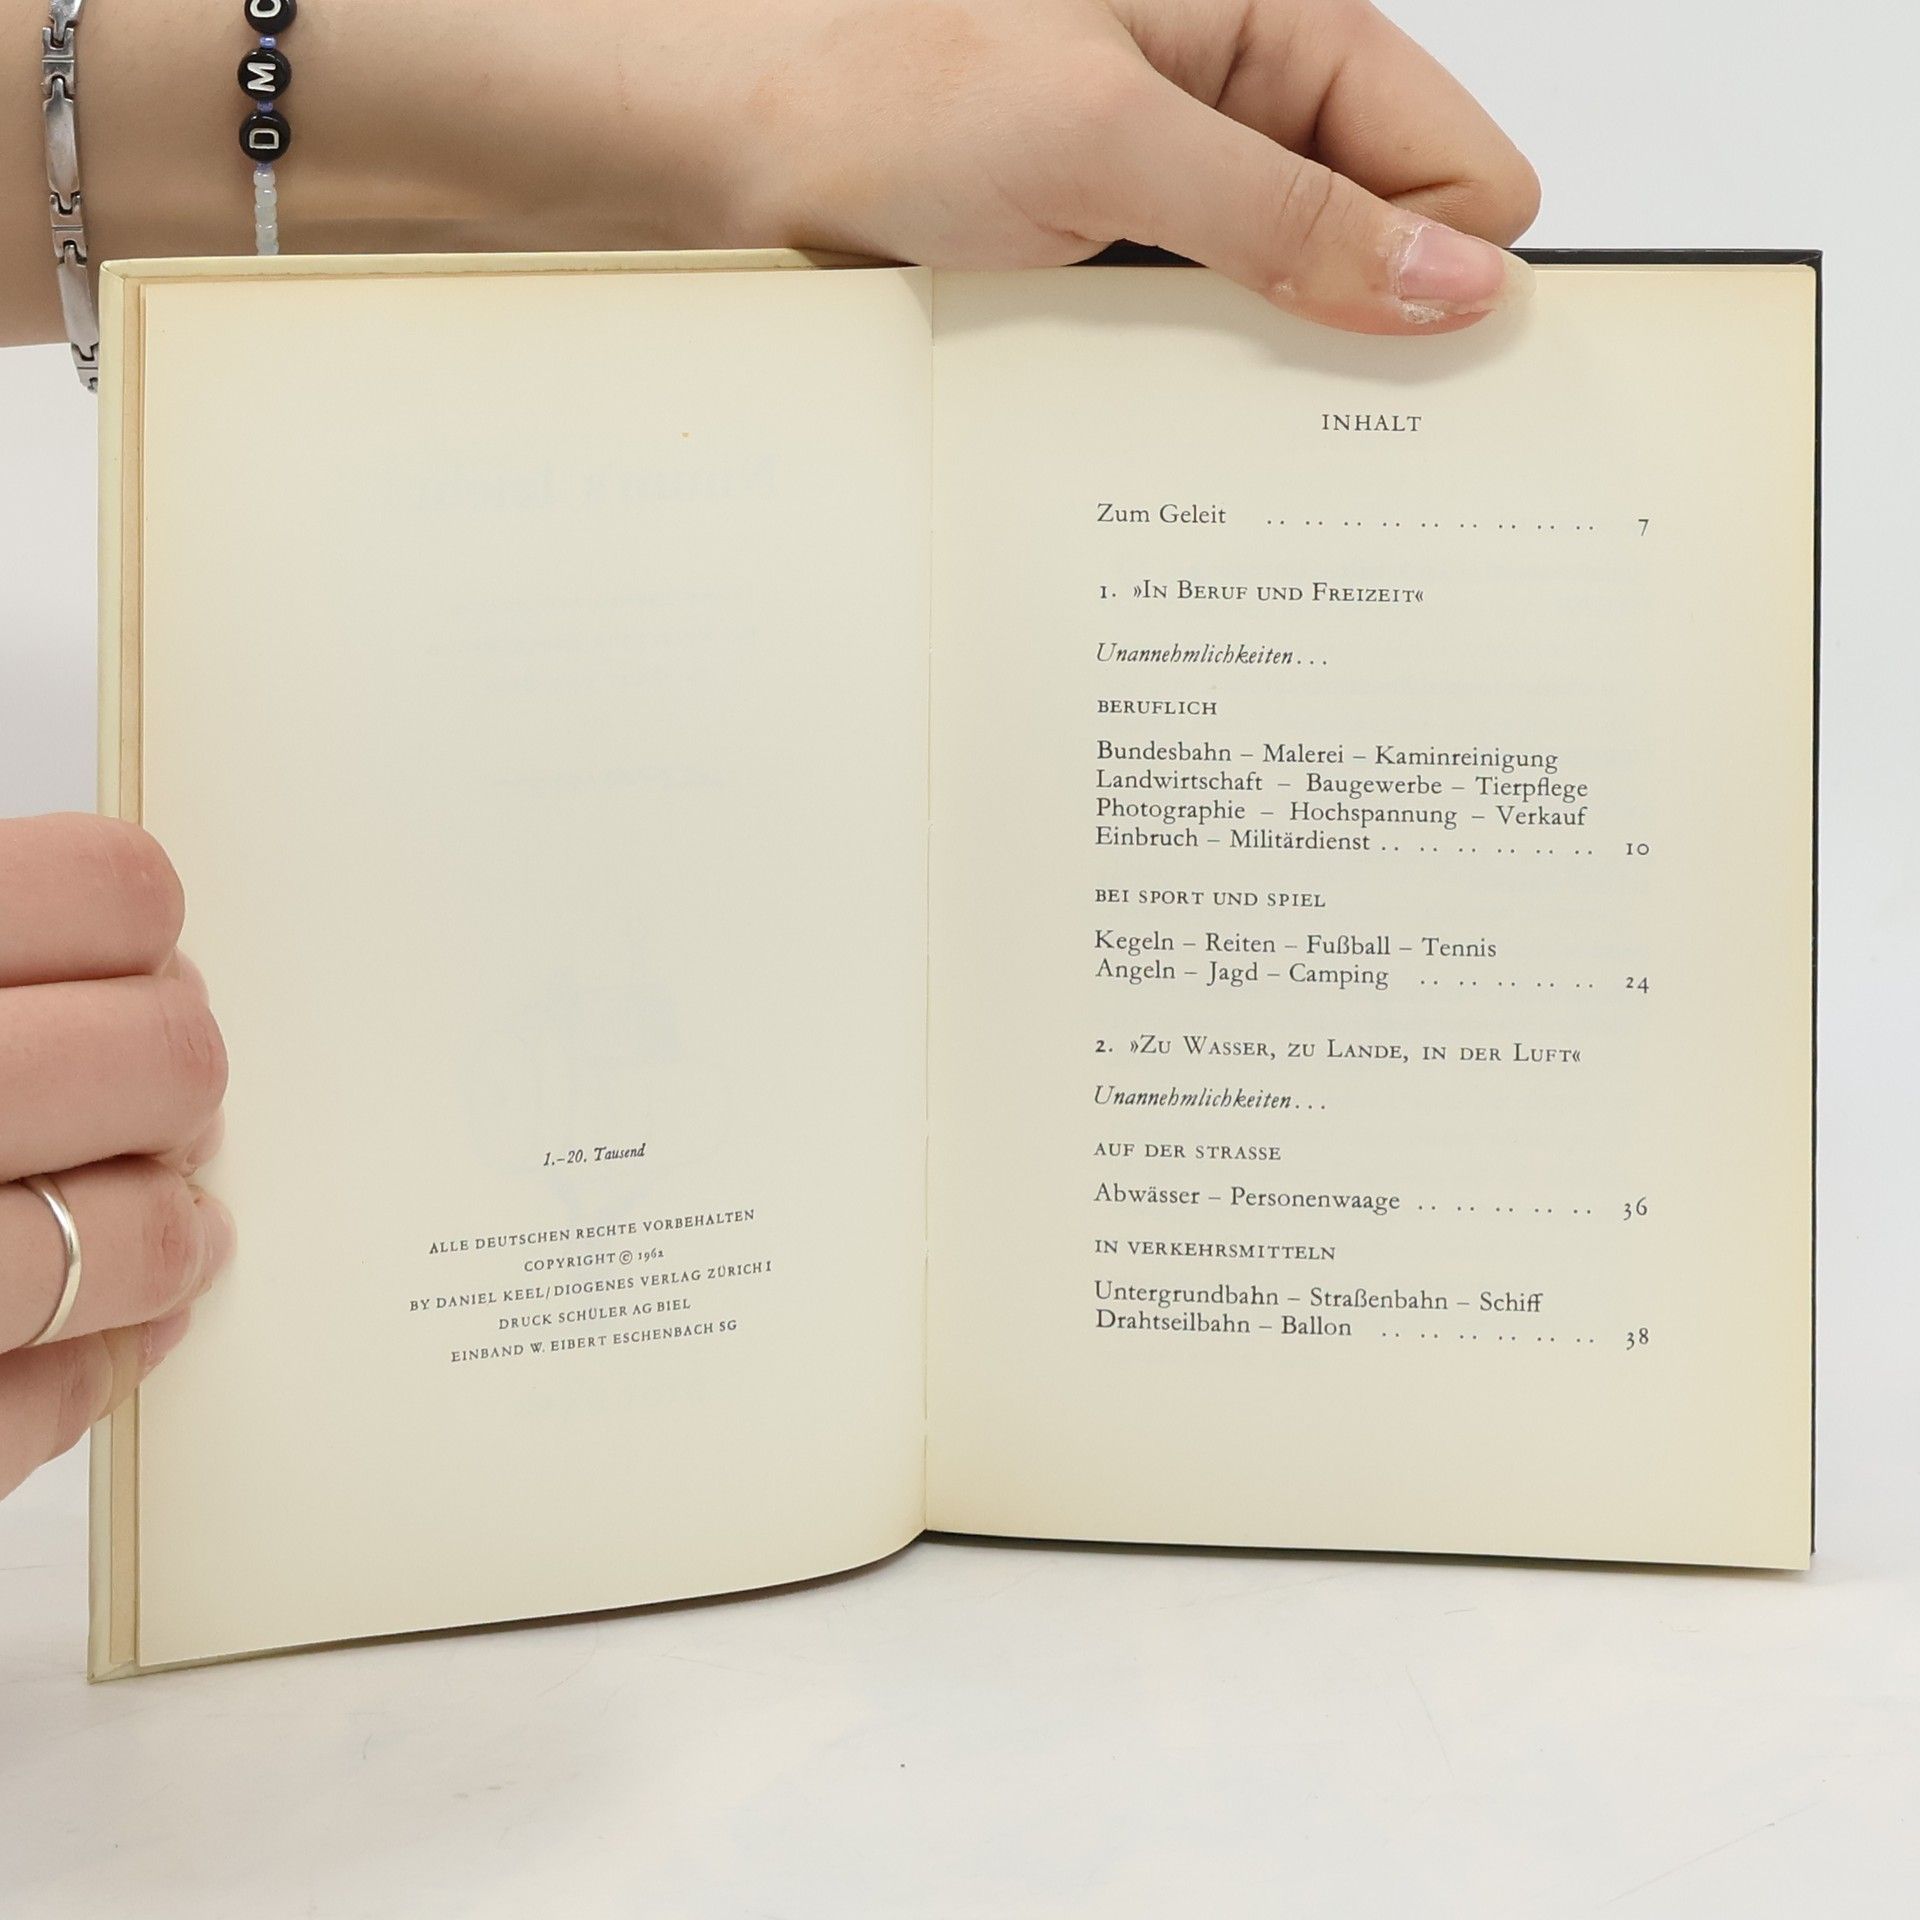 DMC
1.–20. Tausend
ALLE DEUTSCHEN RECHTE VORBEHALTEN
COPYRIGHT © 1962
BY DANIEL KEEL/DIOGENES VERLAG ZÜRICH I
DRUCK SCHÜLER AG BIEL
EINBAND W. EIBERT ESCHENBACH SG
INHALT
Zum Geleit .. .. .. .. .. .. .. .. .. 7
1. »In Beruf und Freizeit«
Unannehmlichkeiten...
BERUFLICH
Bundesbahn – Malerei – Kaminreinigung
Landwirtschaft – Baugewerbe – Tierpflege
Photographie – Hochspannung – Verkauf
Einbruch – Militärdienst .. .. .. .. .. .. 10
BEI SPORT UND SPIEL
Kegeln – Reiten – Fußball – Tennis
Angeln – Jagd – Camping .. .. .. .. .. 24
2. »Zu Wasser, zu Lande, in der Luft«
Unannehmlichkeiten...
AUF DER STRASSE
Abwässer – Personenwaage .. .. .. .. .. 36
IN VERKEHRSMITTELN
Untergrundbahn – Straßenbahn – Schiff
Drahtseilbahn – Ballon .. .. .. .. .. .. 38